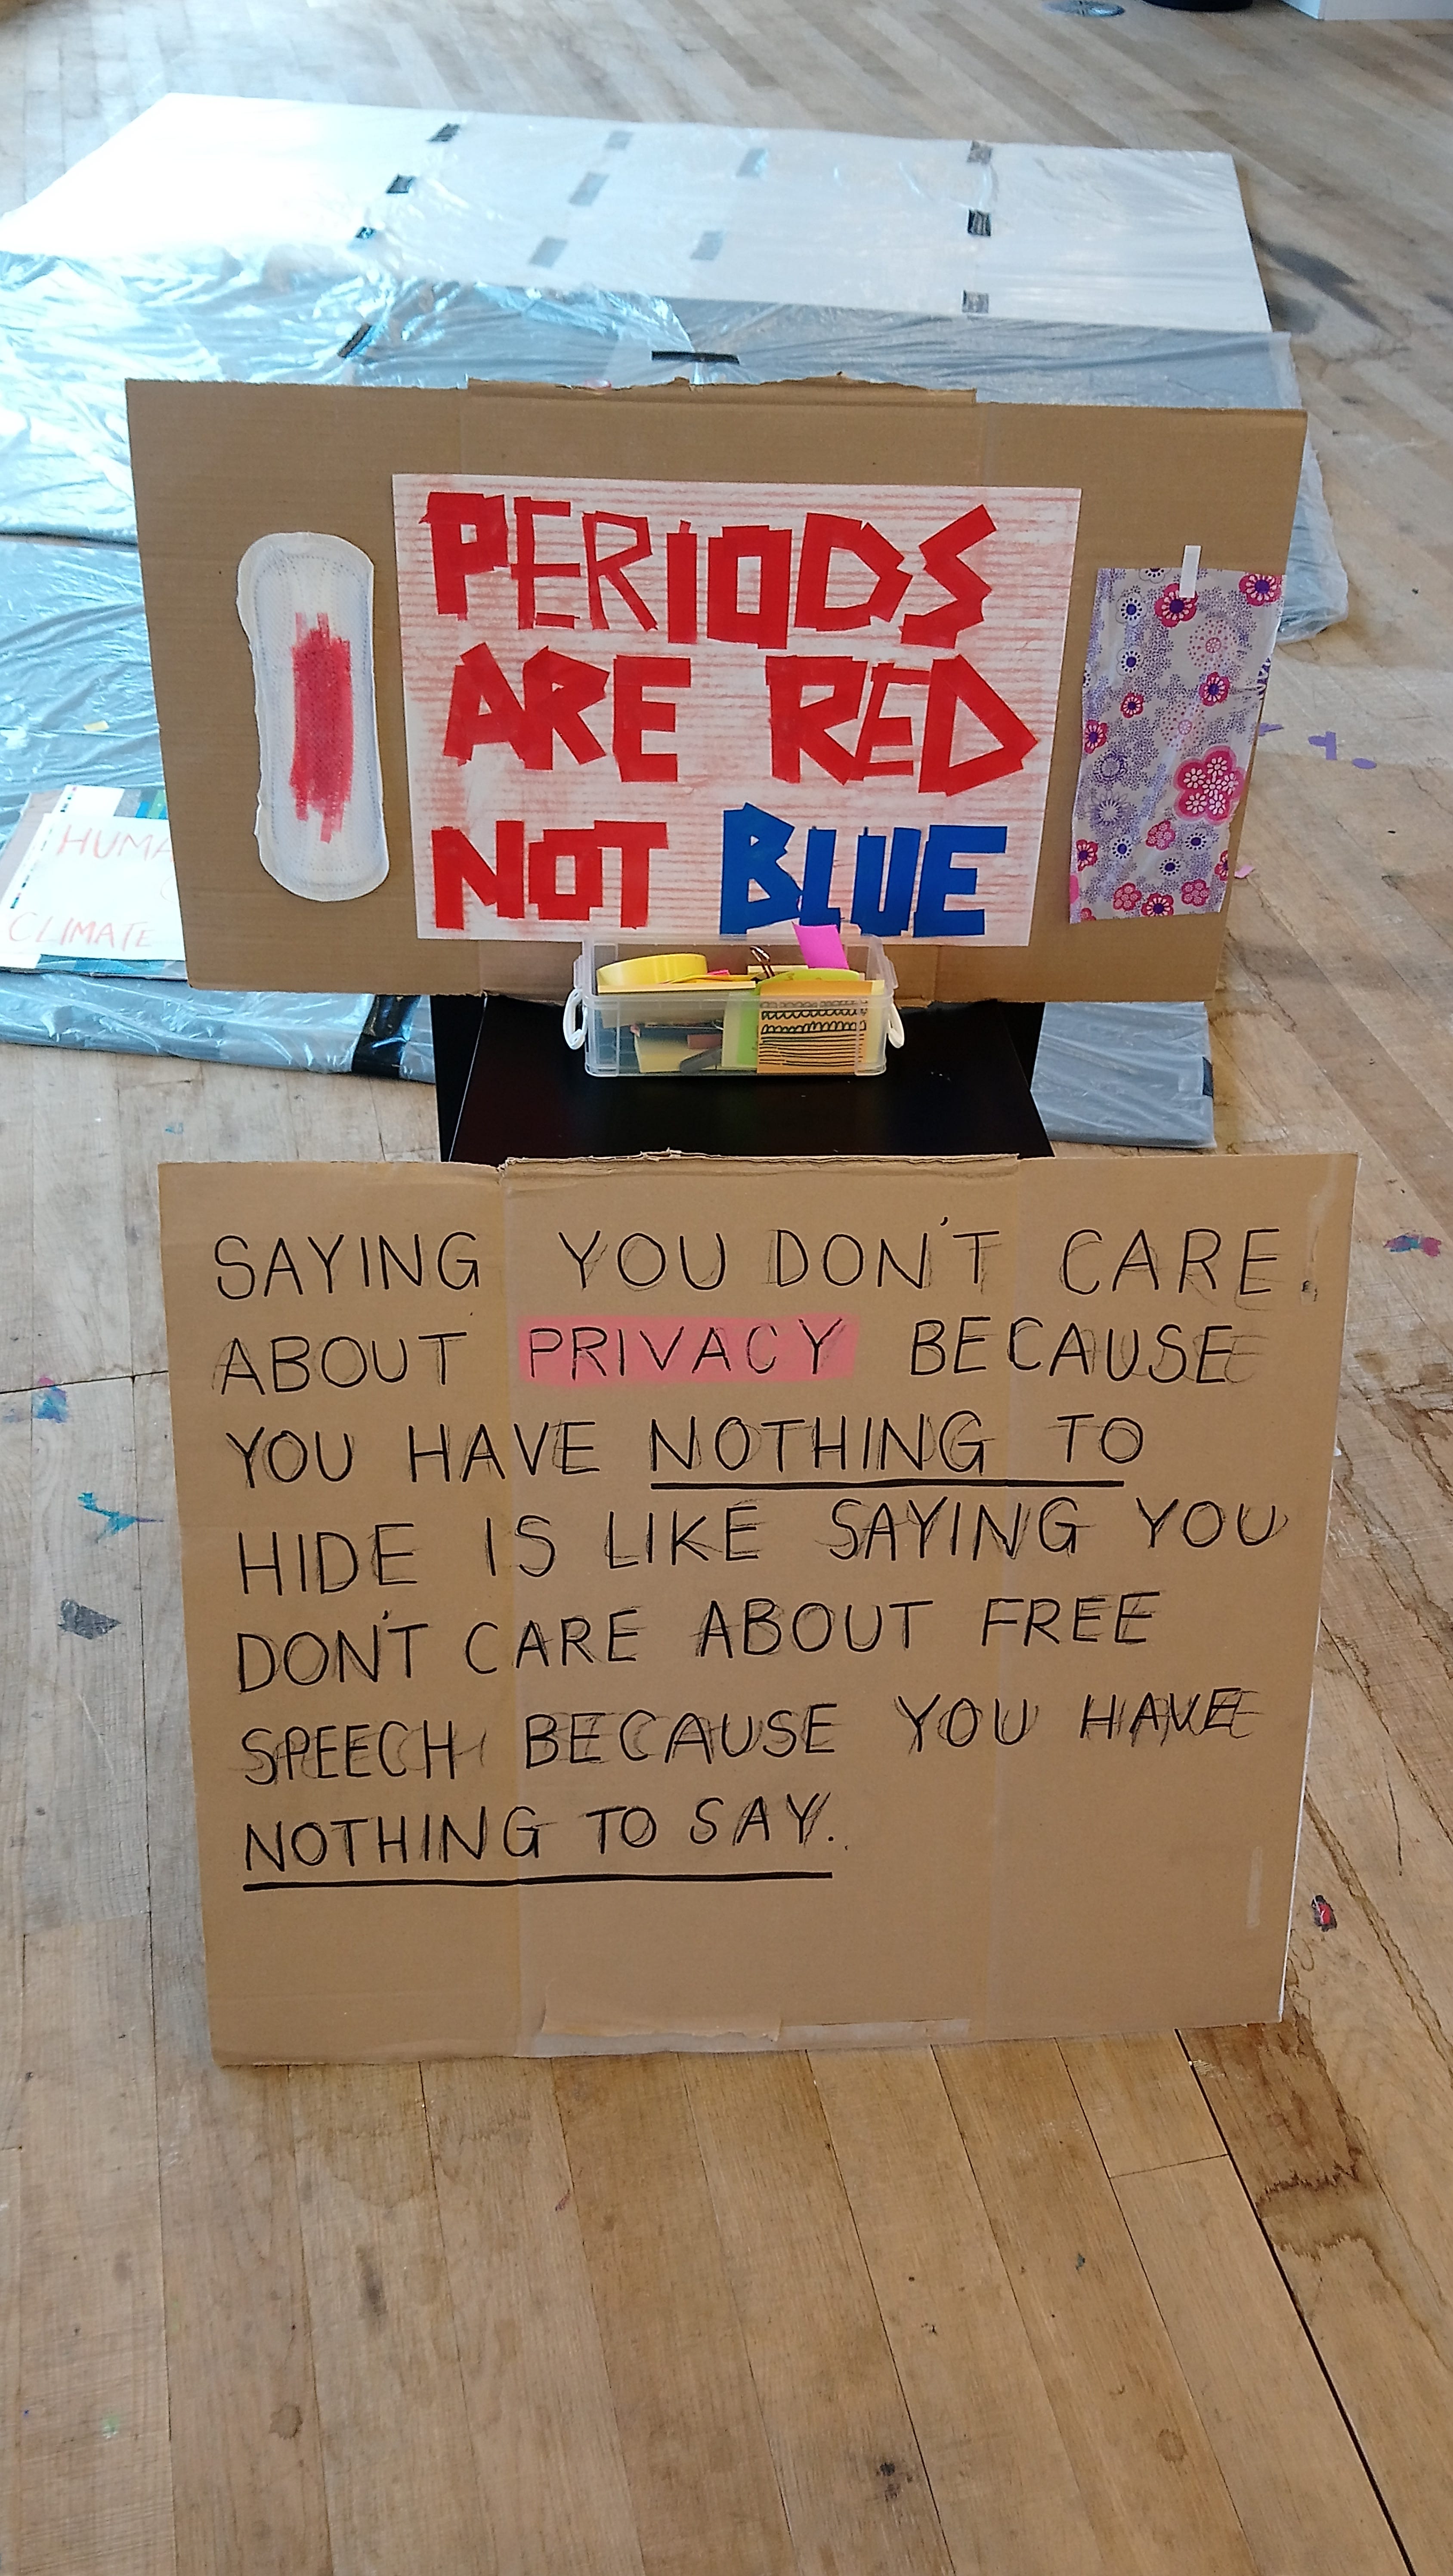 PERIODS
ARE RED
NOT BLUE
HUMA
CLIMATE
SAYING YOU DON'T CARE
ABOUT PRIVACY BECAUSE
YOU HAVE NOTHING TO
HIDE IS LIKE SAYING YOU
DON'T CARE ABOUT FREE
SPEECH BECAUSE YOU HAVE
NOTHING TO SAY.